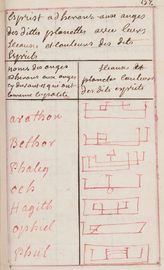 157.
Esprist adherans aux anges
des dittes planettes avec leurs
Sceaux et couleurs des dits
Esprits
noms des anges
adherans aux anges
Sceaux et
planetes couleurs
des dits esprits
arathon
Bethor
Phaleg
och
Hagith
ophiel
Phul